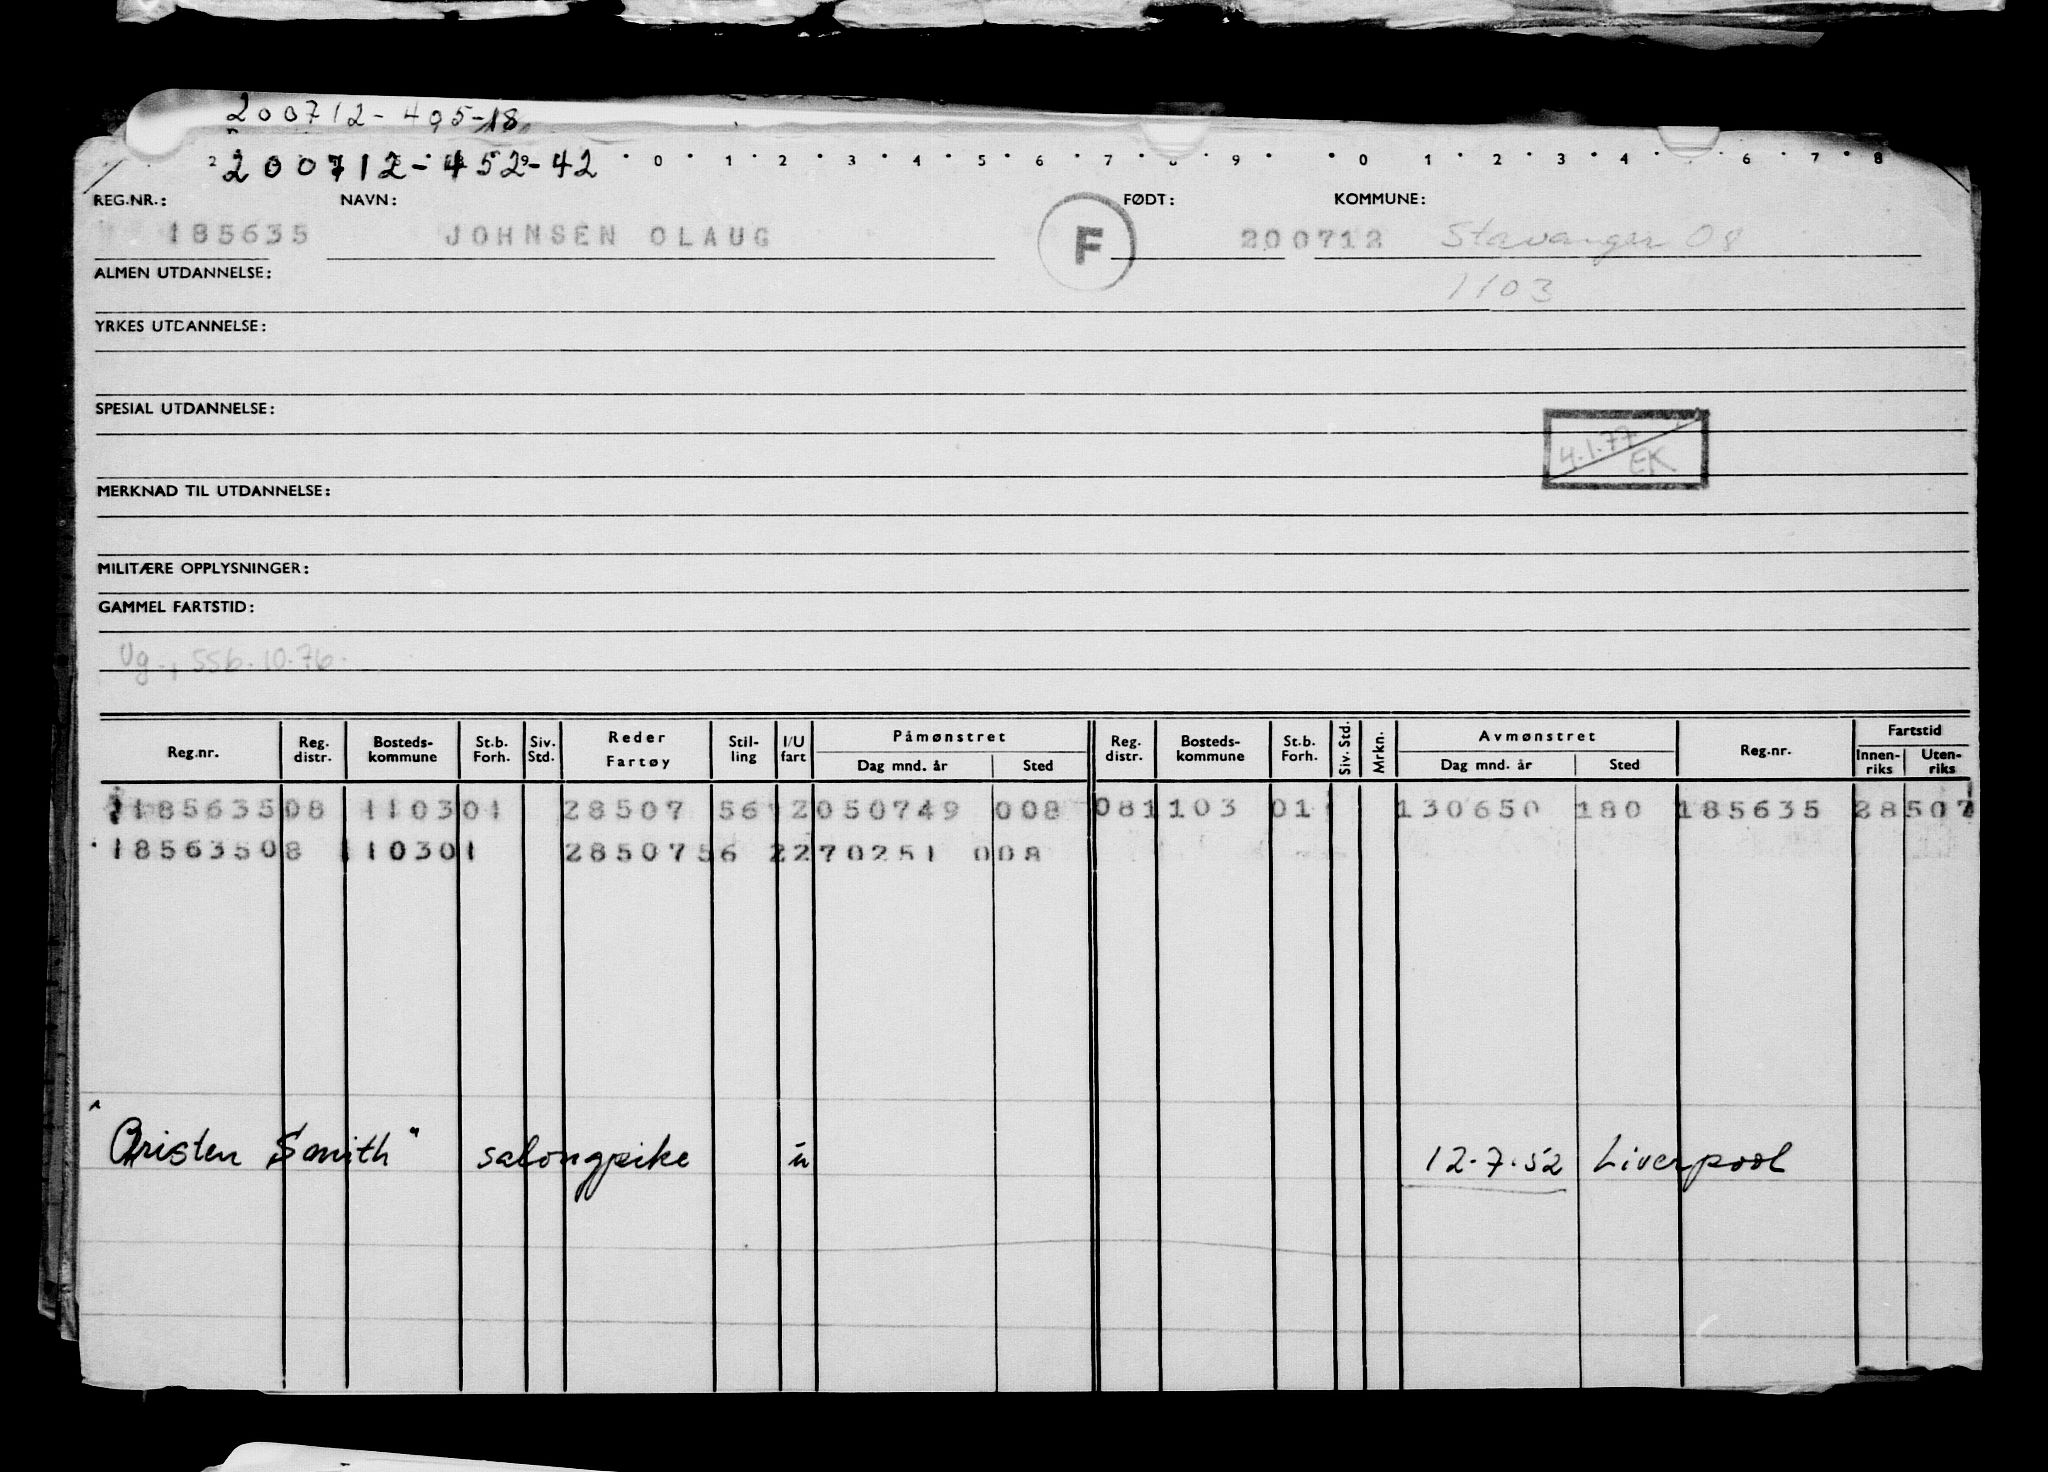 200712-405-18
200712-452-42 0 1 2 3 4 5 6 7 8 9 0 1 2 3 4 6 7 8
REG.NR.: NAVN: FØDT: KOMMUNE:
185635 JOHNSEN OLAUG F 200712 Stavanger 08
ALMEN UTDANNELSE: 1103
YRKES UTDANNELSE:
SPESIAL UTDANNELSE:
4.1.77 EK
MERKNAD TIL UTDANNELSE:
MILITÆRE OPPLYSNINGER:
GAMMEL FARTSTID:
Ug., 556.10.76.
Reg.nr. Reg. distr. Bosteds-kommune St.b. Forh. Siv. Std. Reder Fartøy Stil-ling I/U fart Påmønstret Dag mnd. år Sted Reg. distr. Bosteds-kommune St.b. Forh. Siv. Std. Mrkn. Avmønstret Dag mnd. år Sted Reg.nr. Fartstid Innen-riks Uten-riks
185635 08 1103 01 28507 56 2 050749 008 08 1103 01 130650 180 185635 28507
185635 08 1103 01 28507 56 2 270251 008
"Christen Smith" salongpike u 12.7.52 Liverpool